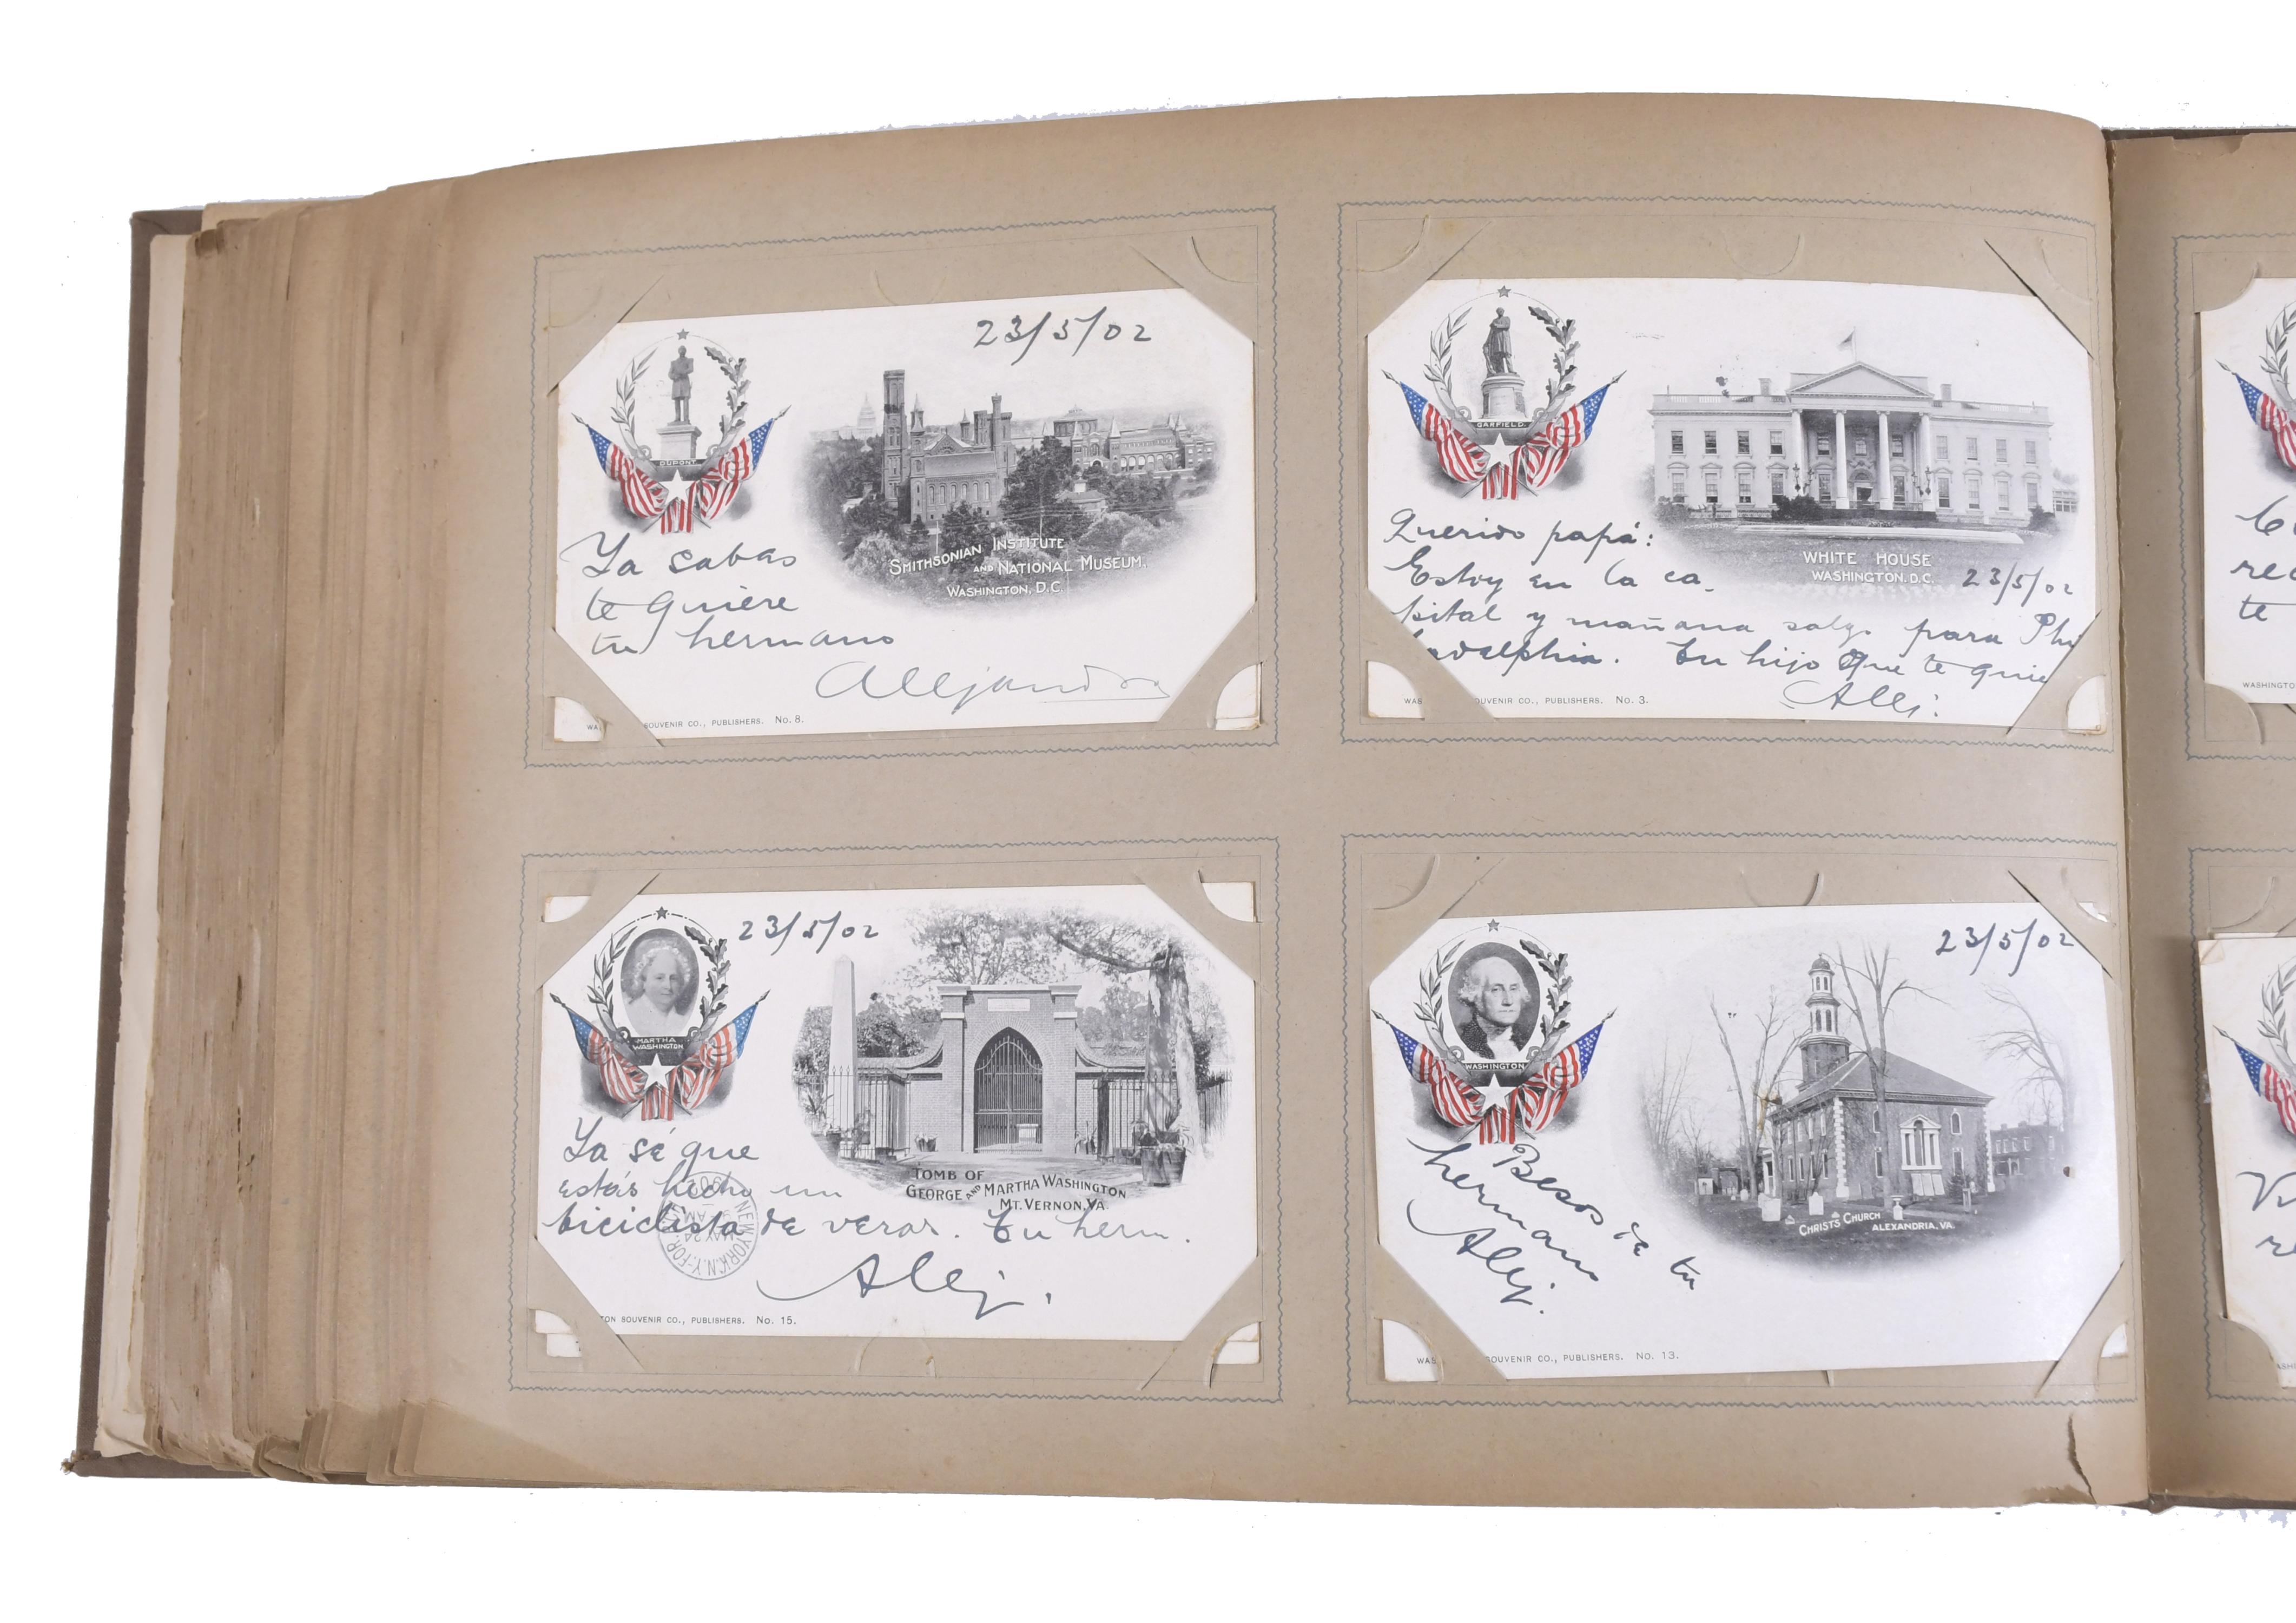 23/5/02
DUPONT
SMITHSONIAN INSTITUTE
AND NATIONAL MUSEUM,
WASHINGTON, D.C.
Ya sabas
te quiere
tu hermano
Alejandro
WA
SOUVENIR CO., PUBLISHERS. No. 8.
GARFIELD
WHITE HOUSE
WASHINGTON. D.C.
23/5/02
Querido papá:
Estoy en la ca-
pital y mañana salgo para Phi
ladelphia. Tu hijo que te quie
Alej.
WAS
OUVENIR CO., PUBLISHERS. No. 3.
23/5/02
MARTHA
WASHINGTON
TOMB OF
GEORGE AND MARTHA WASHINGTON
MT. VERNON, VA.
Ya sé que
estás hecho un
biciclista de veras. Tu herm.
Alej.
NEW YORK, N.Y.
MAY 24
AM
TON SOUVENIR CO., PUBLISHERS. No. 15.
23/5/02
WASHINGTON
CHRISTS CHURCH
ALEXANDRIA, VA.
Besos de tu
hermano
Alej.
WAS
OUVENIR CO., PUBLISHERS. No. 13.
te
WASHINGTO